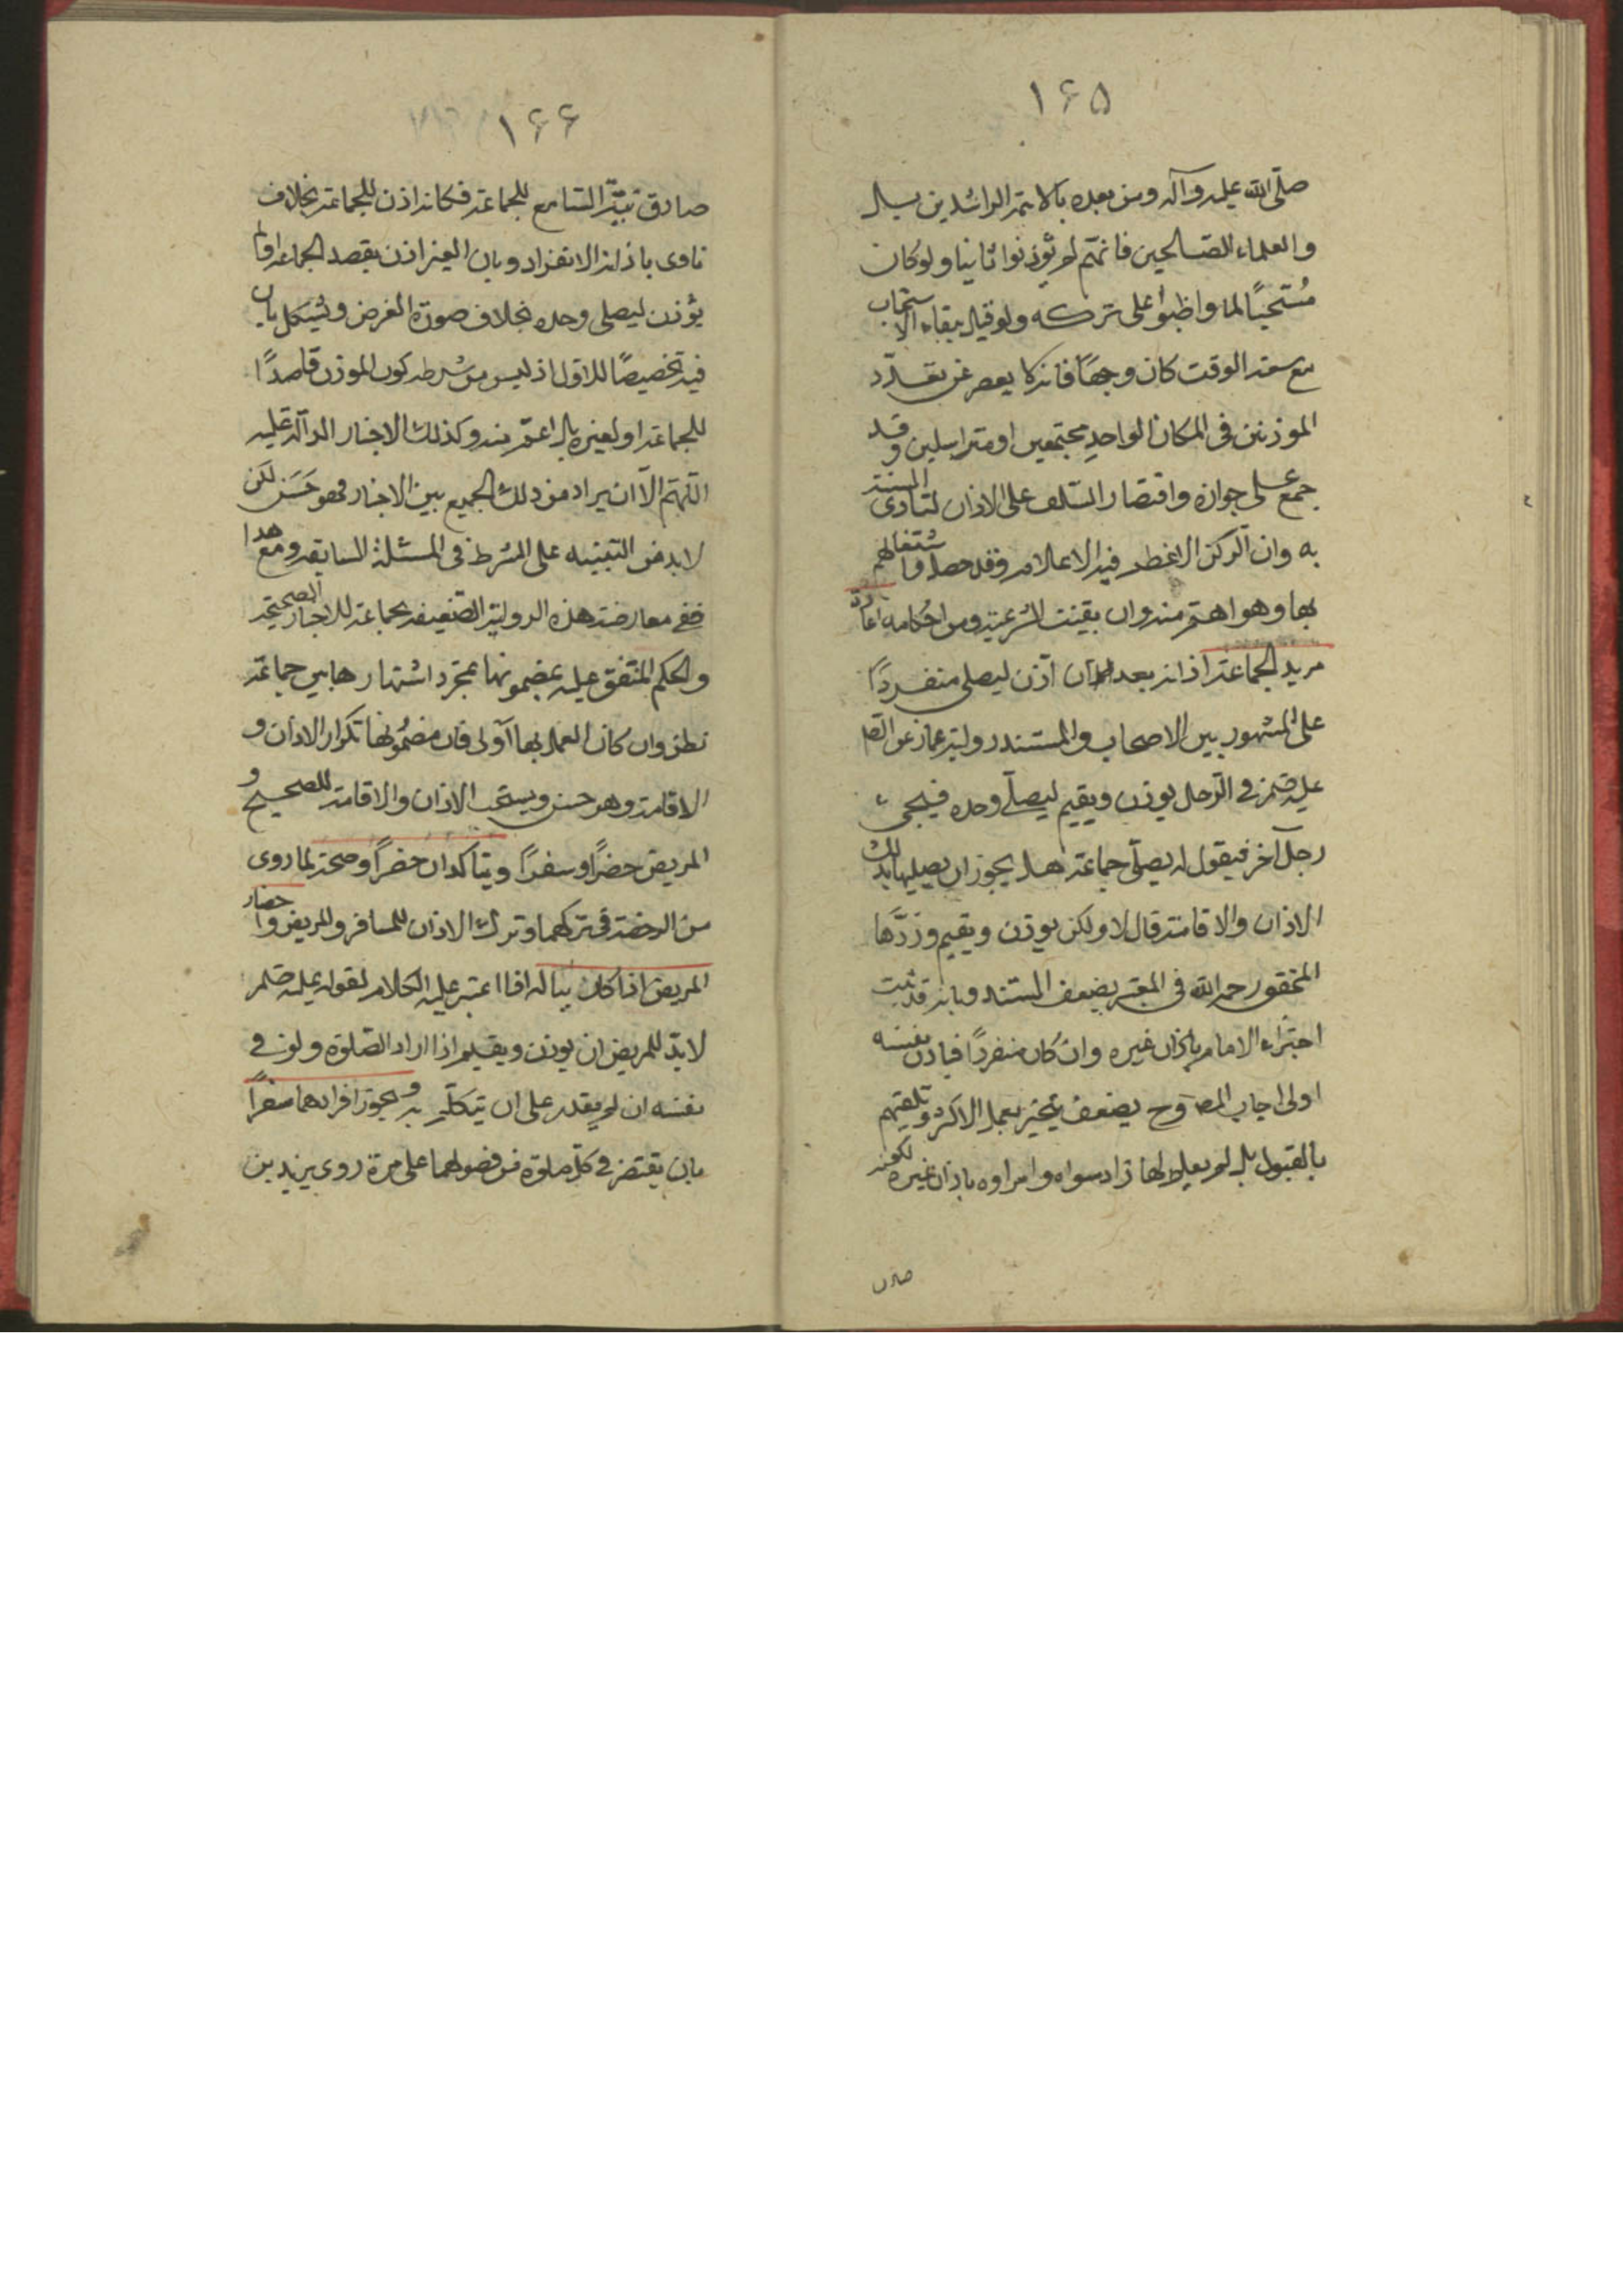 ١٦٥
صلّى الله عليه وآله ومن بعده بالائمة الراشدين بل
والعلماء الصّالحين فانهم لم يؤذنوا ثانيا ولو كان
مُستحبًا لما واظبوا على تركه ولو قيل ببقاء الاستحباب
مع سعة الوقت كان وجهًا فانه كا عن تعدّد
الموذنين فى المكان الواحد مجتمعين او متراسلين وقد
جمع على جوازه واقتصار السّلف على الاذان لتادى السنة
به وان الركن الاعظم فيه الاعلام وقد حصل واشتغالهم
بها وهو اهم منه وان بقيت لشرعيته ومن احكامه اعادة
مريد الجماعة اذانه بعد ان اذن ليصلى منفردًا
على المشهور بين الاصحاب والمستند رواية عمار عن الصّا
عليه فى الرجل يوذن ويقيم ليصلّى وحده فيجىء
رجل آخر فيقول له يصلّى جماعة هل يجوز ان يصليها بذلك
الاذان والاقامة قال لا ولكن يوذن ويقيم وردّها
المحقق رحمه الله فى المعتبر بضعف المستند وبانه قد ثبت
اجتزاء الامام باذان غيره وان كان منفردًا فباذن نفسه
اولى اجاب المص وح بضعف بعمل الاكثر وتلقيهم
بالقبول بل لم لها زاد سواه باذان غيره لكونه
صادق
١٦٦
صادق نيّة السّامع للجماعة فكانه اذن للجماعة بخلاف
ناوى باذانه الانفراد وبان الغير اذن بقصد الجماعة او لم
يؤذن ليصلى وحده بخلاف صورة الفرض ويشكل بان
فيه تخصيصًا للاول اذ ليس من شرطه كون الموذن قاصدًا
للجماعة او لغيره بل اعمّ منه وكذلك الاخبار الدآلة عليه
اللّهمّ الّا ان يراد من ذلك الجمع بين الاخبار فهو حَسَن لكن
لابد من التنبيه على الشرط فى المسئلة السابقه ومع هذا
ففى معارضة هذه الرواية الضّعيفه بجماعة للاخبار الصحيحة
والحكم المتفق عليه بمضمونها بمجرد اشتهارها بين جماعة
نظر وان كان العمل بها آولى فان مضمونها تكرار الاذان و
الاقامة وهو حسن ويستحب الاذان والاقامة للصحيح و
المريض حضرًا وسفرًا ويتاكدان حضرًا وصحة لما روى
من الرخصة فى تركهما وترك الاذان للمسافر والمريض واحضار
المريض اذا كان بباله اذا اعتبر عليه الكلام لقوله عليه
لابدّ للمريض ان يوذن ويقيم اذا اراد الصّلوة ولو فى
نفسه ان لم يقدر على ان يتكلّم به ويجوز افرادهما سفرًا
بان يقتصر فى كلّ صلوة من فصولهما على مرة روى يزيد بن